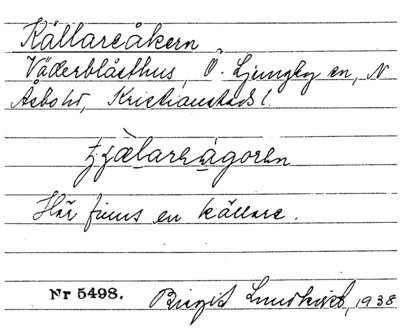 Källareåkern
Väderblåsthus, Ö. Ljungby sn, N
Åsbo hd, Kristianstads l.
tjälareågoren
Här finns en källare.
Nr 5498. Birgit Lundkvist, 1938